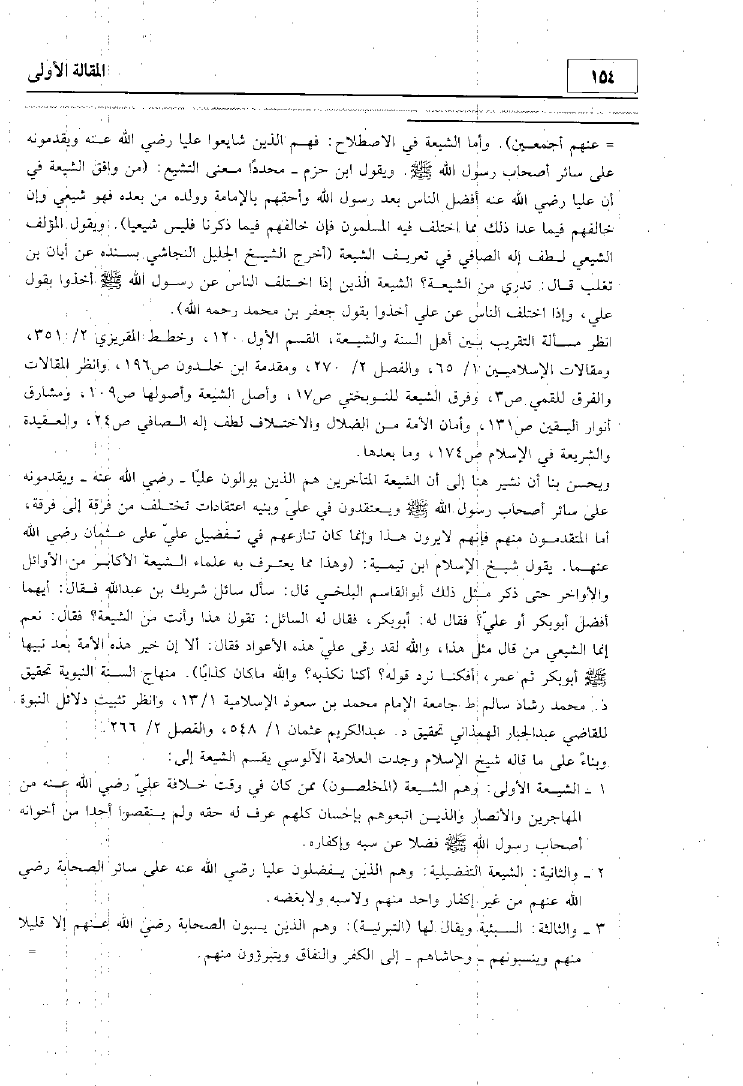 ١٥٤
المقالة الأولى
= عنهم أجمعـين). وأما الشيعة في الاصطلاح: فهـم الذين شايعوا عليا رضي الله عنه ويقدمونه
على سائر أصحاب رسول الله ﷺ. ويقول ابن حزم ـ محددًا معنى التشيع: (من وافق الشيعة في
أن عليا رضي الله عنه أفضل الناس بعد رسول الله وأحقهم بالإمامة وولده من بعده فهو شيعي وإن
خالفهم فيما عدا ذلك مما اختلف فيه المسلمون فإن خالفهم فيما ذكرنا فليس شيعيا). ويقول المؤلف
الشيعي لـطف إله الصافي في تعريـف الشيعة (أخرج الشيـخ الجليل النجاشي بسنده عن أبان بن
تغلب قـال: تدري من الشيعـة؟ الشيعة الذين إذا اخـتلف الناس عن رسـول الله ﷺ أخذوا بقول
علي، وإذا اختلف الناس عن علي أخذوا بقول جعفر بن محمد رحمه الله).
انظر مسـألة التقريب بـين أهل السنة والشيـعة، القسم الأول ١٢٠، وخطـط المقريزي ٢/ ٣٥١،
ومقالات الإسلاميـين ١/ ٦٥، والفصل ٢/ ٢٧٠، ومقدمة ابن خلـدون ص١٩٦، وانظر المقالات
والفرق للقمي ص٣، وفرق الشيعة للنـوبختي ص١٧، وأصل الشيعة وأصولها ص١٠٩، ومشارق
أنوار اليـقين ص١٣١، وأمان الأمة مـن الضلال والاختـلاف لطف إله الـصافي ص٢٤، والعـقيدة
والشريعة في الإسلام ص١٧٤، وما بعدها.
ويحسن بنا أن نشير هنا إلى أن الشيعة المتأخرين هم الذين يوالون عليًا ـ رضي الله عنه ـ ويقدمونه
على سائر أصحاب رسول الله ﷺ ويـعتقدون في عليّ وبنيه اعتقادات تختـلف من فرقة إلى فرقة،
أما المتقدمـون منهم فإنهم لايرون هـذا وإنما كان تنازعهم في تـفضيل عليّ على عـثمان رضي الله
عنهـما. يقول شيـخ الإسلام ابن تيمـية: (وهذا مما يعتـرف به علماء الـشيعة الأكابـر من الأوائل
والأواخر حتى ذكر مـثل ذلك أبوالقاسم البلخـي قال: سأل سائل شريك بن عبدالله فـقال: أيهما
أفضل أبوبكر أو عليّ؟ فقال له: أبوبكر، فقال له السائل: تقول هذا وأنت من الشيعة؟ فقال: نعم
إنما الشيعي من قال مثل هذا، والله لقد رقى عليّ هذه الأعواد فقال: ألا إن خير هذه الأمة بعد نبيها
ﷺ أبوبكر ثم عمر، أفكنـا نرد قوله؟ أكنا نكذبه؟ والله ماكان كذابًا). منهاج السـنة النبوية تحقيق
د. محمد رشاد سالم ط جامعة الإمام محمد بن سعود الإسلامية ١/ ١٣، وانظر تثبيت دلائل النبوة
للقاضي عبدالجبار الهمذاني تحقيق د. عبدالكريم عثمان ١/ ٥٤٨، والفصل ٢/ ٢٦٦.
وبناءً على ما قاله شيخ الإسلام وجدت العلامة الآلوسي يقسم الشيعة إلى:
١ ـ الشيـعة الأولى: وهم الشيعة (المخلصـون) ممن كان في وقت خـلافة عليّ رضي الله عـنه من
المهاجرين والأنصـار والذيـن اتبعوهم بإحسان كلهم عرف له حقه ولم ينـتقصوا أحدا من أخوانه
أصحاب رسول الله ﷺ فضلا عن سبه وإكفاره.
٢ ـ والثانية: الشيعة التفضيلية: وهم الذين يـفضلون عليا رضي الله عنه على سائر الصحابة رضي
الله عنهم من غير إكفار واحد منهم ولاسبه ولابغضه.
٣ ـ والثالثة: السـبئية ويقال لها (التبرئيـة): وهم الذين يسبون الصحابة رضي الله عـنهم إلا قليلا
منهم وينسبونهم ـ وحاشاهم ـ إلى الكفر والنفاق ويتبرؤون منهم. =